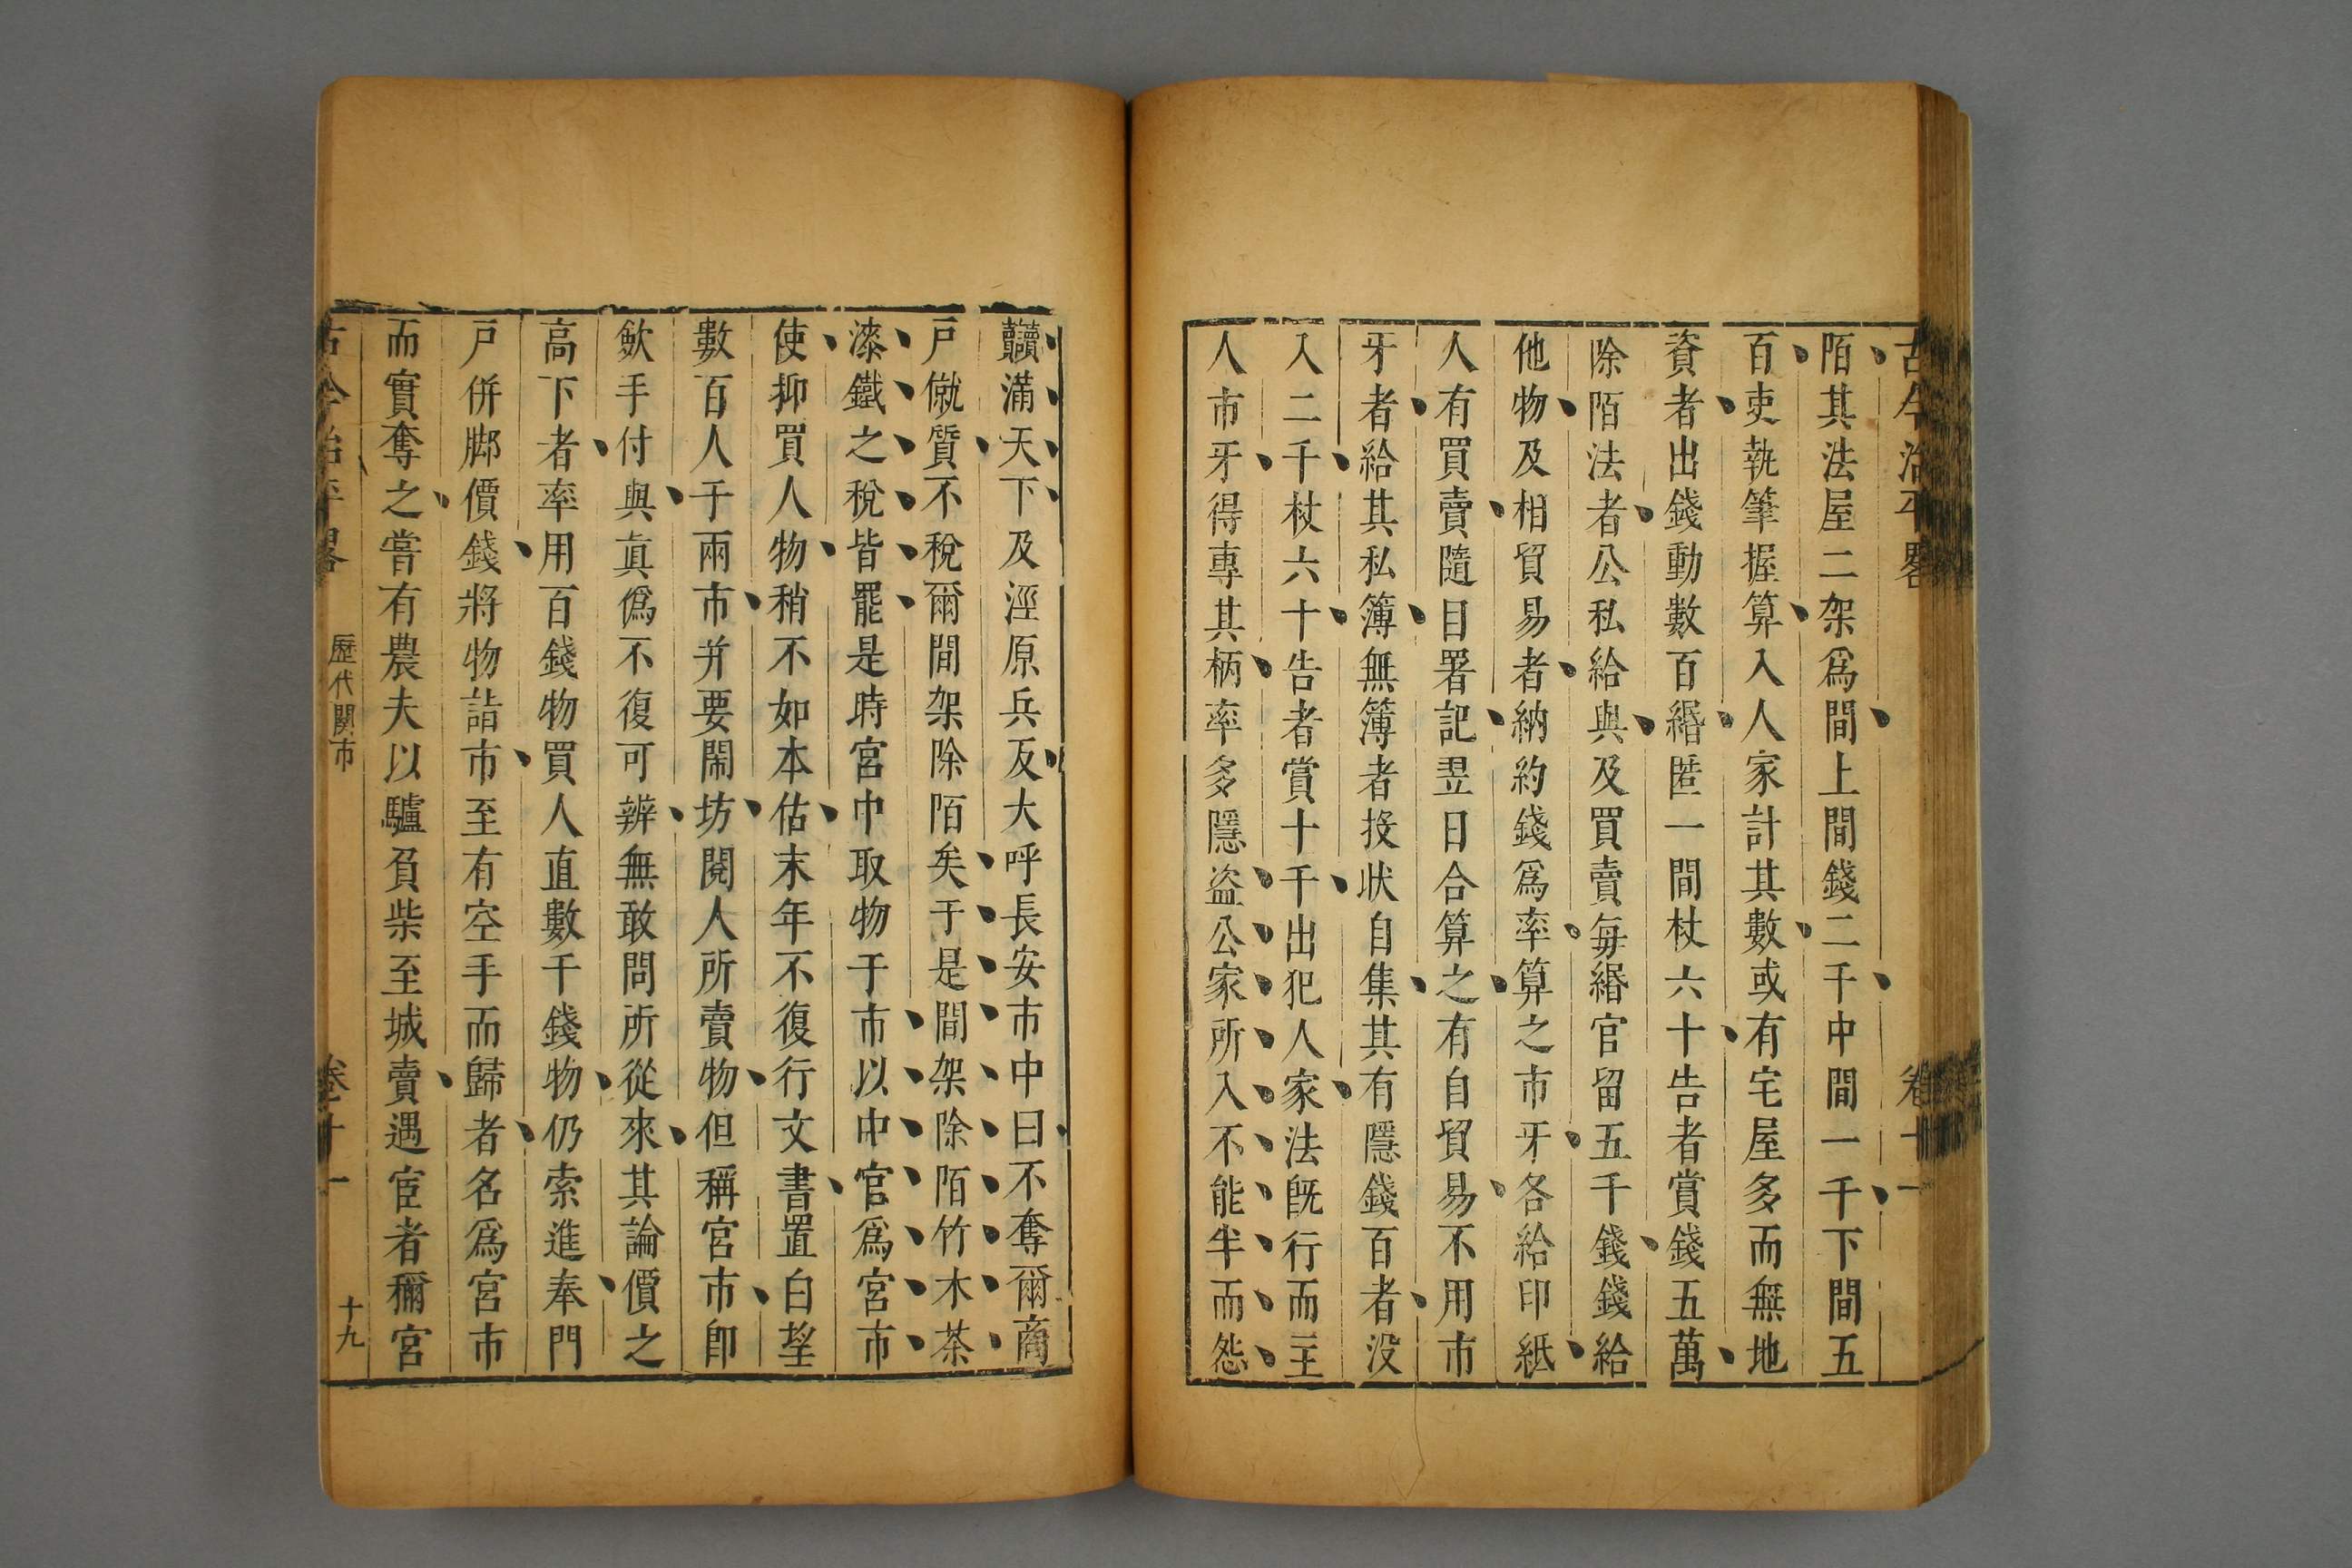 古今治平畧 卷十一
陌其法屋二架爲間上間錢二千中間一千下間五
百吏執筆握算入人家計其數或有宅屋多而無地
資者出錢動數百緡匿一間杖六十告者賞錢五萬
除陌法者公私給與及買賣每緡官留五千錢錢給
他物及相貿易者納約錢爲率算之市牙各給印紙
人有買賣隨自署記翌日合算之有自貿易不用市
牙者給其私簿無簿者投狀自集其有隱錢百者没
入二千杖六十告者賞十千出犯人家法既行而主
人市牙得專其柄率多隱盗公家所入不能半而怨
讟滿天下及涇原兵反大呼長安市中曰不奪爾商
戸僦質不稅爾間架除陌矣于是間架除陌竹木茶
漆鐵之稅皆罷是時宮中取物于市以中官爲宮市
使抑買人物稍不如本估末年不復行文書置白望
數百人于兩市并要閙坊閱人所賣物但稱宮市卽
斂手付與眞僞不復可辨無敢問所從來其論價之
高下者率用百錢物買人直數千錢物仍索進奉門
戸併脚價錢將物詣市至有空手而歸者名爲宮市
而實奪之嘗有農夫以驢負柴至城賣遇宦者稱宮
古今治平畧 歷代關市 卷十一 十九